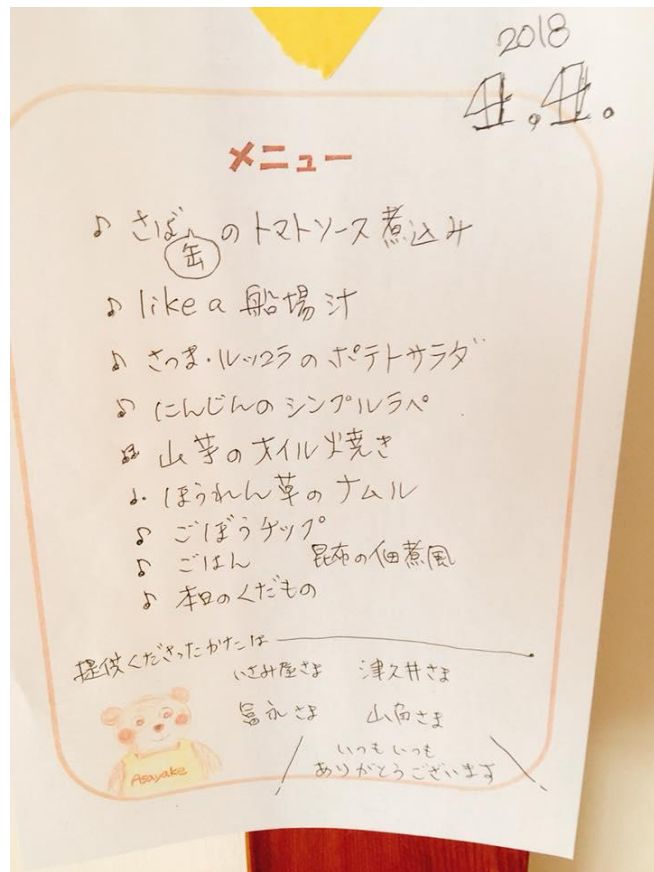 2018
4.4.
メニュー
♪ さば缶のトマトソース煮込み
♪ like a 船場汁
♪ さつま・ルッコラのポテトサラダ
♪ にんじんのシンプルラペ
♫ 山芋のオイル焼き
♪ ほうれん草のナムル
♪ ごぼうチップ
♪ ごはん 昆布の佃煮風
♪ 本日のくだもの
提供くださったかたは
いさみ屋さま 津久井さま
冨永さま 山角さま
いつもいつも
ありがとうございます
Asayake